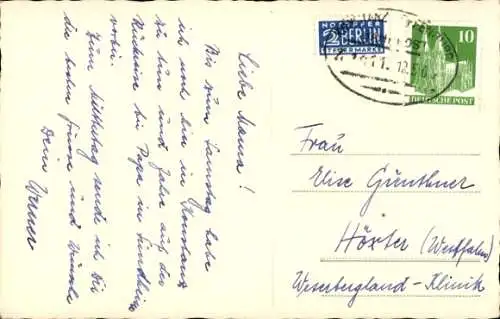 Liebe Mama!
Bis zum Samstag habe
ich noch hier in Konstanz
zu tun und fahre auf der
Rückreise bei Papa in
vorbei.
Zum Muttertag sende ich Dir
die besten Grüsse und Wünsche
Dein Werner
NOTOPFER
2 BERLIN
STEUERMARKE
10
DEUTSCHE POST
Frau
Elise Günthner
Höxter (Westfalen)
Weserbergland-Klinik